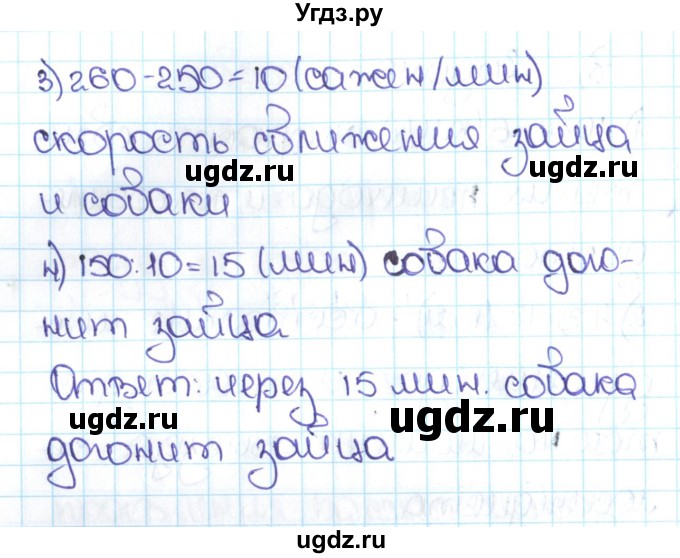 Угдз.ру
3) 260-250=10 (сажен/мин)
скорость сближения зайца
ugdz.ru ugdz.ru
и собаки
4) 150:10=15 (мин) собака дого-
нит зайца
ugdz.ru
Ответ: через 15 мин. собака
ugdz.ru ugdz.ru
догонит зайца
ugdz.ru